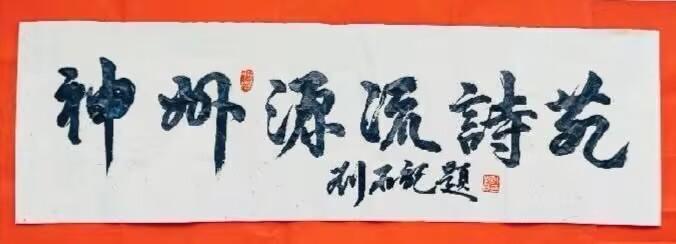 神州源流詩苑
刘題